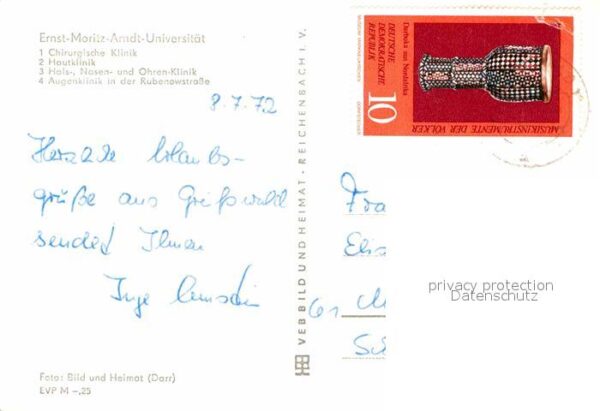 Ernst-Moritz-Arndt-Universität
1 Chirurgische Klinik
2 Hautklinik
3 Hals-, Nasen- und Ohren-Klinik
4 Augenklinik in der Rubenowstraße
8.7.72
Herzliche Urlaubs-
grüße aus Greifswald
sendet Ihnen
Inge
Foto: Bild und Heimat (Darr)
EVP M –,25
VEB BILD UND HEIMAT · REICHENBACH I. V.
Darbuka aus Nordafrika
DEUTSCHE
DEMOKRATISCHE
REPUBLIK
10
MUSIKINSTRUMENTE DER VÖLKER
Fra
Elis
61
privacy protection
Datenschutz